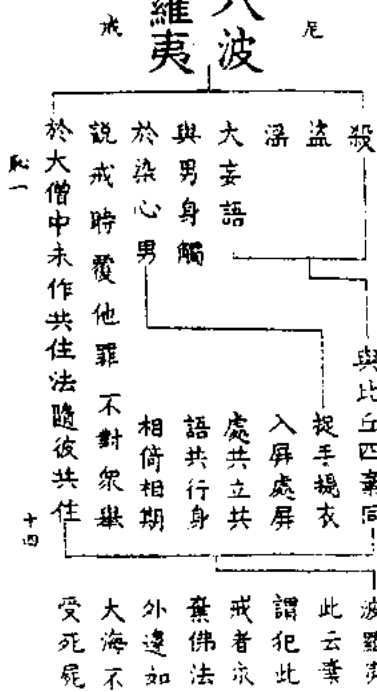 尼
八波
羅夷
戒
殺
盜
婬
大妄語
與男身觸
於染心男
說戒時覆他罪不對衆舉
於大僧中未作共住法隨彼共住
與比丘四棄同
捉手捉衣
入屏處屏
處共立共
語共行身
相倚相期
波羅夷
此云棄
謂犯此
戒者永
棄佛法
外邊如
大海不
受死屍
恥一
十四